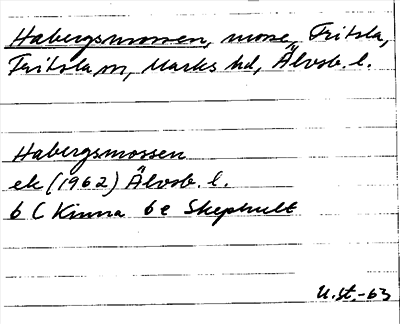 Habergsmossen, mosse, Fritsla,
Fritsla sn, Marks hd, Älvsb. l.
Habergsmossen
ek (1962) Älvsb. l.
6 C Kinna 6 e Skephult
U.st.-63